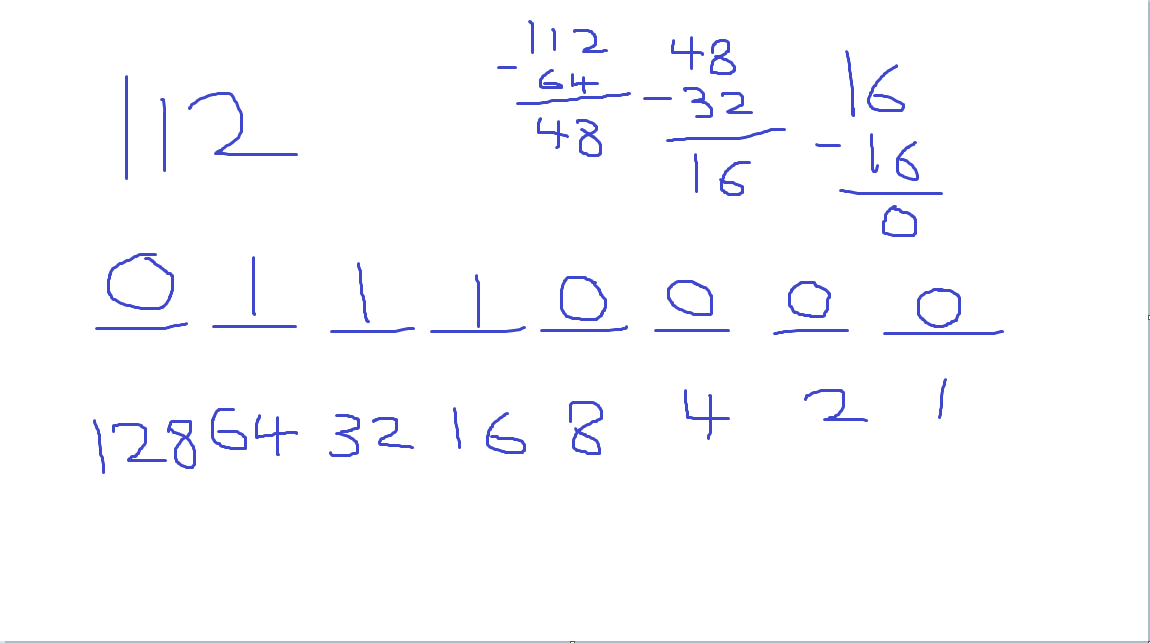 112
-112
64
48
48
-32
16
16
-16
0
0 1 1 1 0 0 0 0
128 64 32 16 8 4 2 1